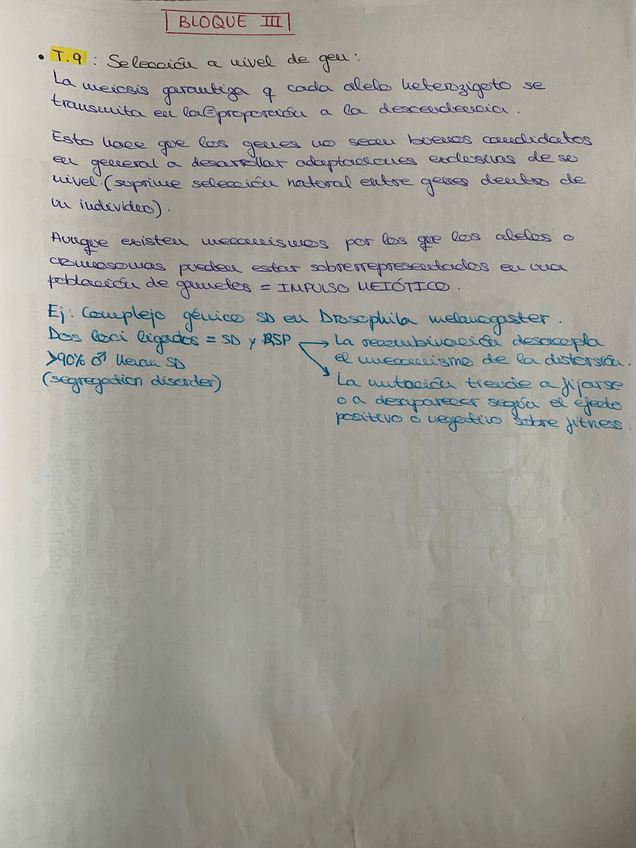 BLOQUE III
• T.9: Selección a nivel de gen:
La meiosis garantiza q cada alelo heterozigoto se
transmita en la = proporción a la descendencia.
Esto hace que los genes no sean buenos candidatos
en general a desarrollar adaptaciones exclusivas de su
nivel. (suprime selección natural entre genes dentro de
un individuo).
Aunque existen mecanismos por los que los alelos o
cromosomas pueden estar sobrerrepresentados en una
población de gametos = IMPULSO MEIÓTICO.
Ej: Complejo génico SD en Drosophila melanogaster.
Dos loci ligados = SD y RSP → La recombinación desacopla
>90% ♂ llevan SD el mecanismo de la distorsión.
(segregation disorder) → La mutación tiende a fijarse
o a desaparecer según el efecto
positivo o negativo sobre fitness.